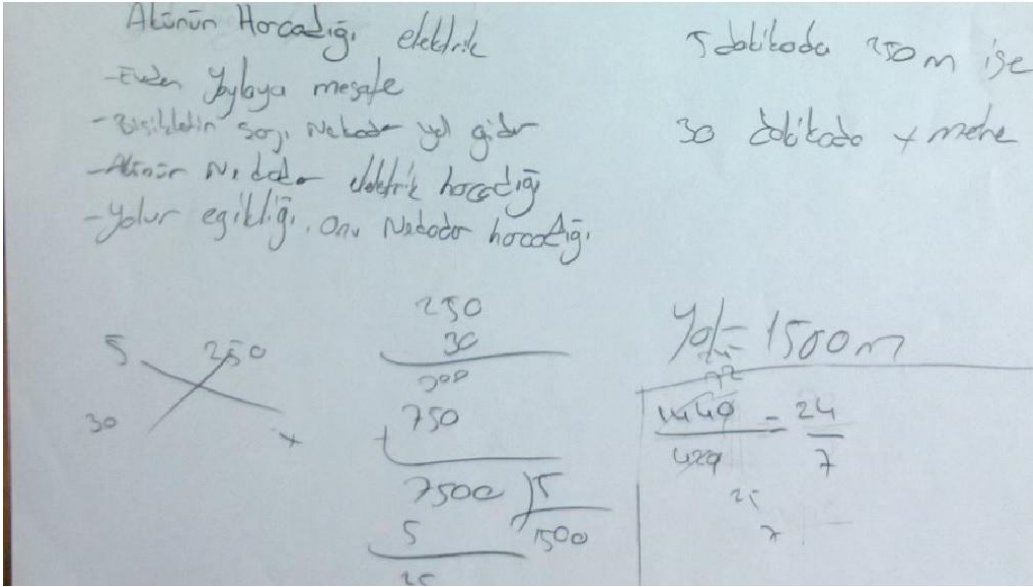 Akünün Harcadığı elektrik
- Evden Yaylaya mesafe
- Bisikletin şarjı Nekadar yol gider
- Akünün Nekadar elektrik harcadığı
- Yolun eğikliği. Onu Nekadar harcadığı
5 dakikada 250 m ise
30 dakikada x metre
5 250
30 x
250
30
000
750
+
7500 5
5 1500
25
Yol = 1500 m
1440 = 24
420 7